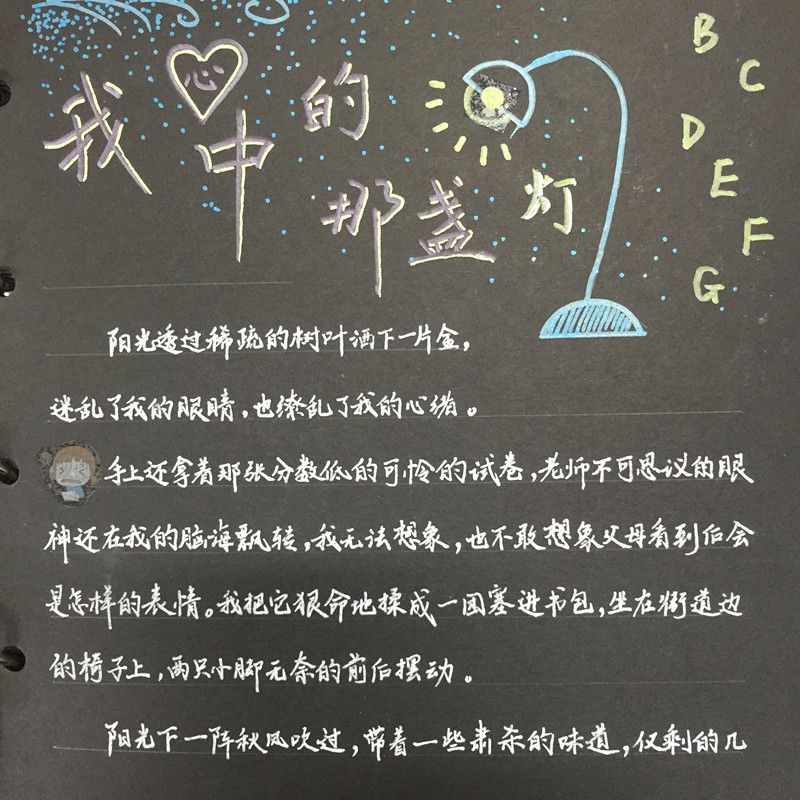 我心中的那盏灯
B
C
D
E
F
G
阳光透过稀疏的树叶洒下一片金，
迷乱了我的眼睛，也缭乱了我的心绪。
手上还拿着那张分数低的可怜的试卷，老师不可思议的眼
神还在我的脑海飘转，我无法想象，也不敢想象父母看到后会
是怎样的表情。我把它狠命地揉成一团塞进书包，坐在街道边
的椅子上，两只小脚无奈的前后摆动。
阳光下一阵秋风吹过，带着一些肃杀的味道，仅剩的几